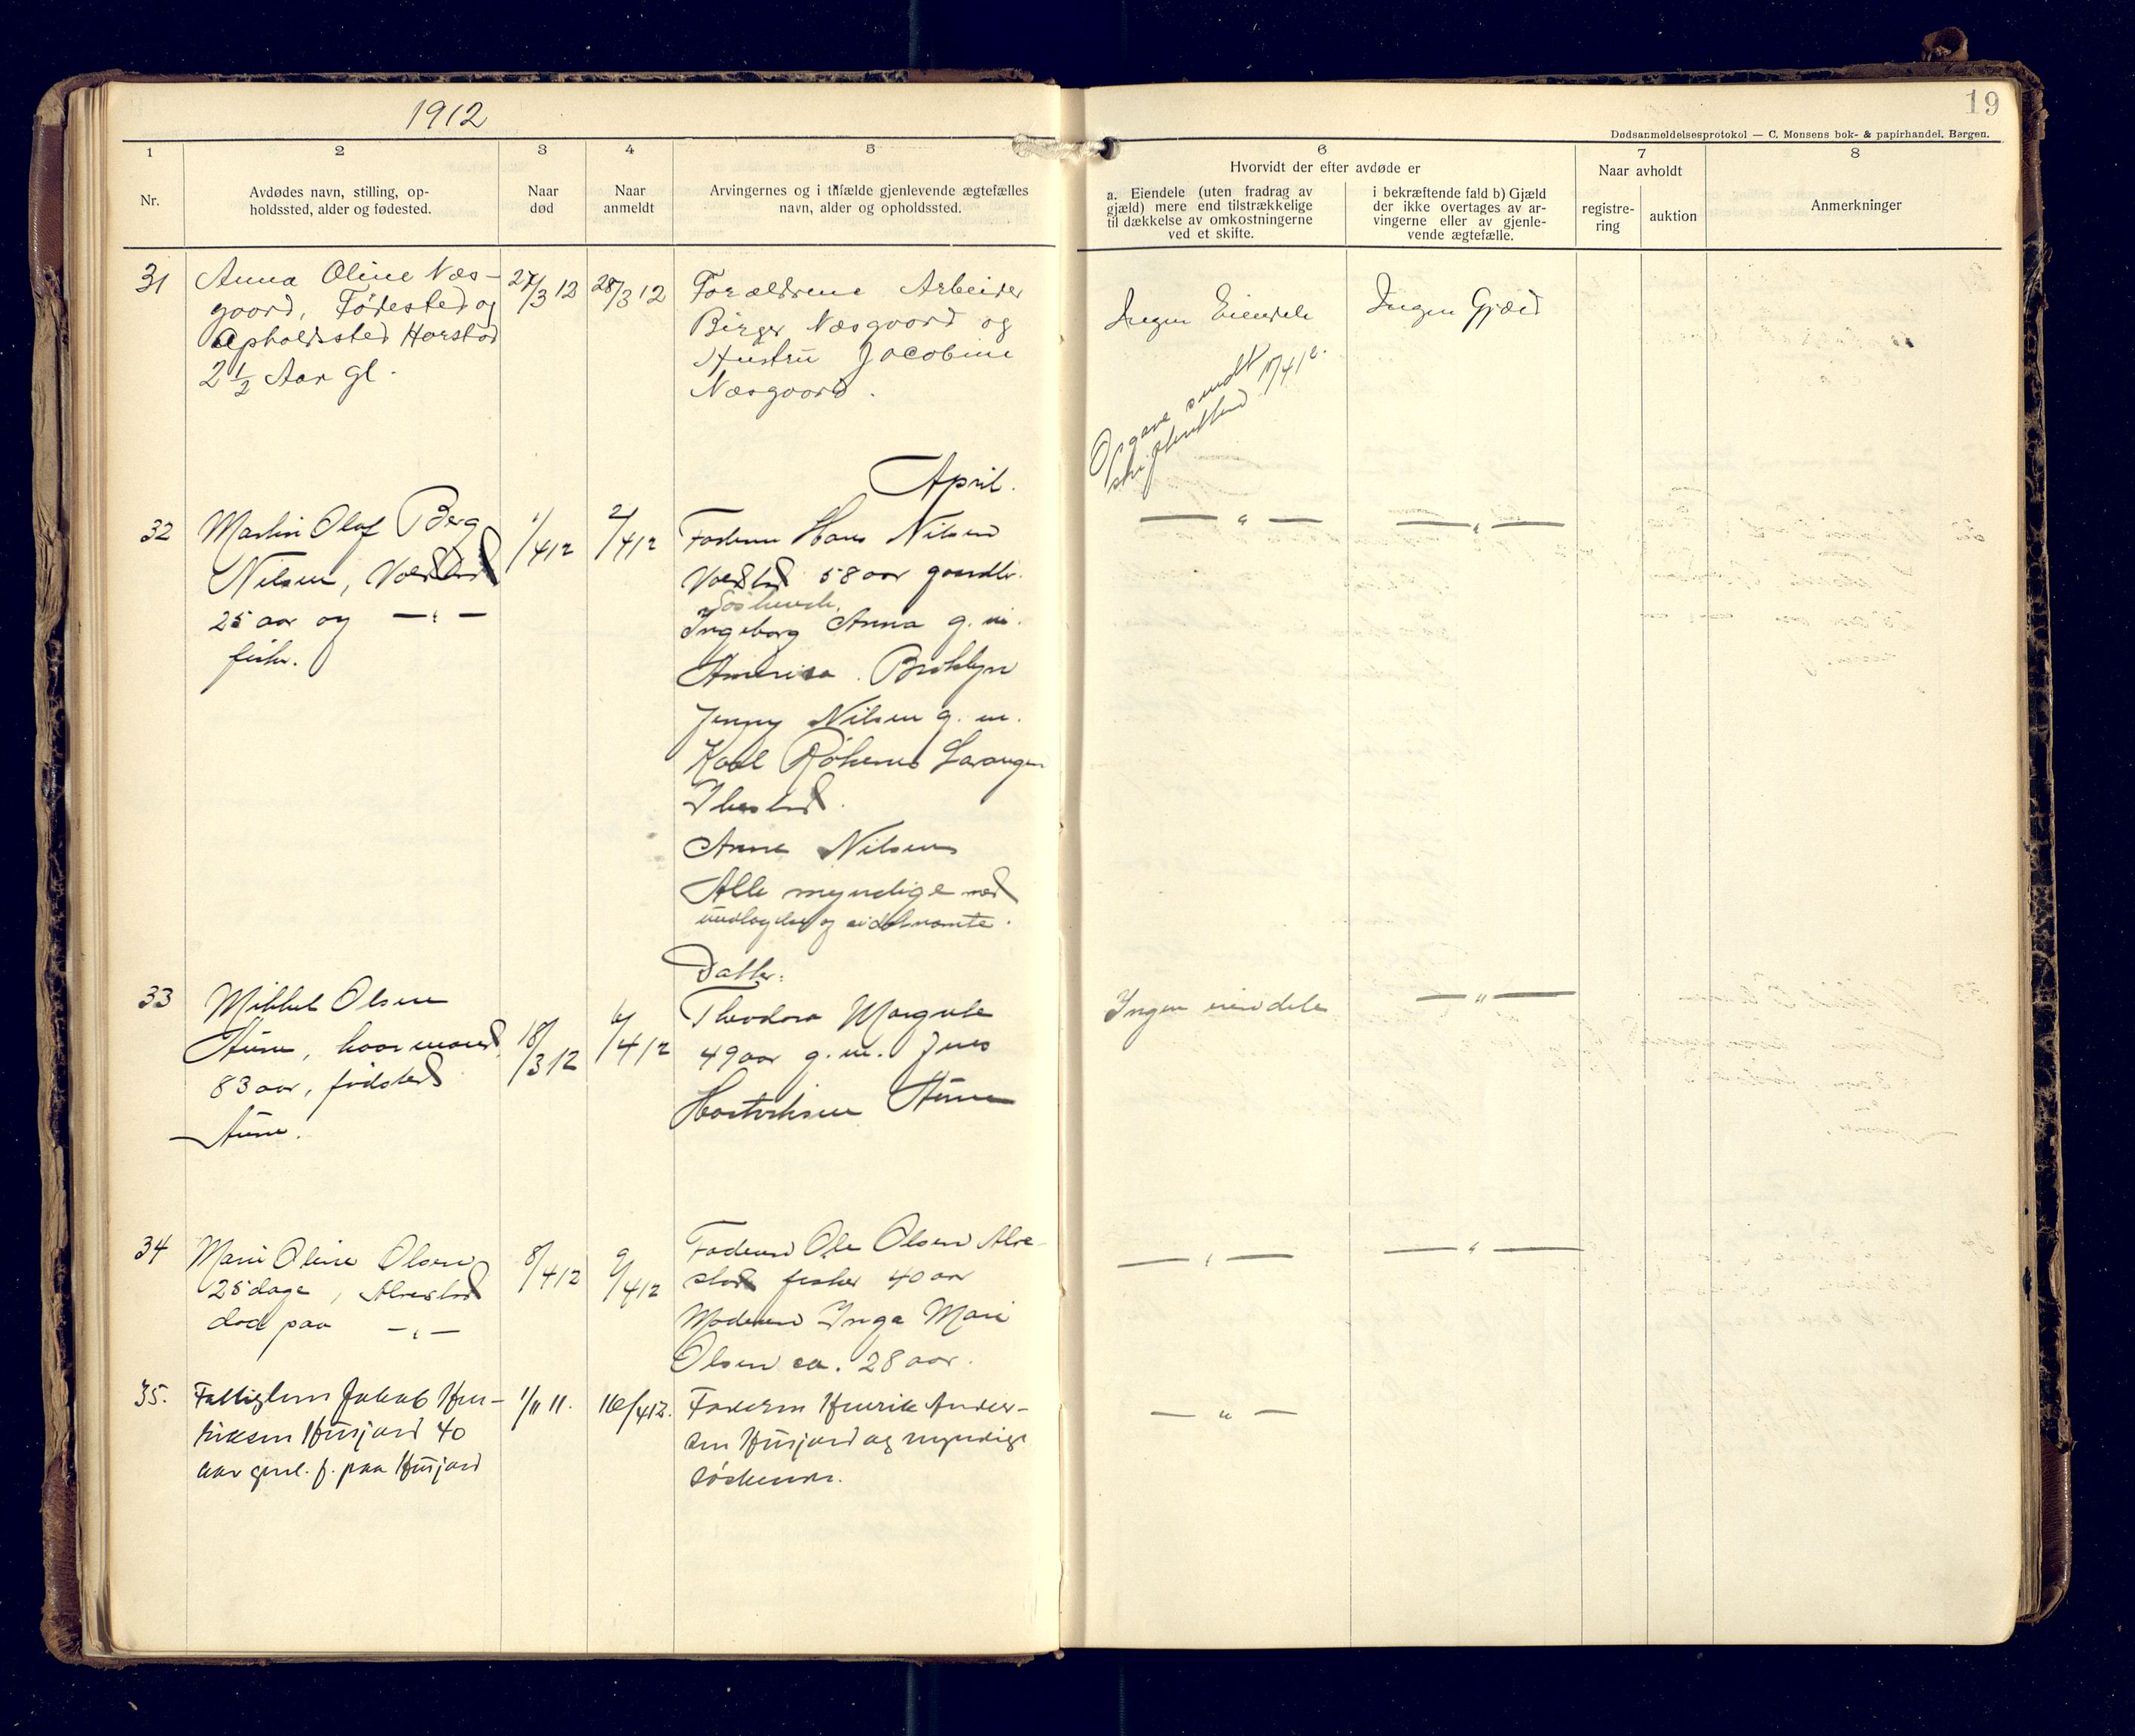 1912
19
Dødsanmeldelsesprotokol — C. Monsens bok- & papirhandel, Bergen.
1
Nr.
2
Avdødes navn, stilling, op-
holdssted, alder og fødested.
3
Naar
død
4
Naar
anmeldt
5
Arvingernes og i tilfælde gjenlevende ægtefælles
navn, alder og opholdssted.
6
Hvorvidt der efter avdøde er
a. Eiendele (uten fradrag av
gjæld) mere end tilstrækkelige
til dækkelse av omkostningerne
ved et skifte.
i bekræftende fald b) Gjæld
der ikke overtages av ar-
vingerne eller av gjenle-
vende ægtefælle.
7
Naar avholdt
registre-
ring
auktion
8
Anmerkninger
31
Anna Oline Næs-
gaard, Fødested og
Opholdssted Harstad
2 1/2 Aar gl.
27/3 12
28/3 12
Forældrene Arbeider
Birger Næsgaard og
Hustru Jacobine
Næsgaard.
Ingen Eiendele
Ingen Gjæld
Opgave sendt
skifteretten 17/4 12.
April.
32
Martin Olaf Berg
Nilsen, Voldstad
25 aar og — " —
fisker.
1/4 12
2/4 12
Faderen Hans Nilsen
Voldstad 58 aar gaardbr.
Søskende
Ingeborg Anna g. m.
America. Broklyn
Jenny Nilsen g. m.
Karl Røkenes Gravangen
Ibestad.
Anna Nilsen
Alle myndige med
undtagelse av sidstnævnte.
— " —
— " —
33
Mikkel Olsen
Aune, kaarmand,
83 aar, fødsted
Aune.
18/3 12
6/4 12
Datter:
Theodora Margrete
49 aar g. m. Jens
Aune
Ingen eiendele
— " —
34
Marie Oline Olsen
25 dage, Alvestad
død paa — " —
8/4 12
9/4 12
Faderen Ole Olsen Alve-
stad fisker 40 aar
Moderen Inga Marie
Olsen ca. 28 aar.
— " —
— " —
35.
Fattiglem Jakob Hen-
riksen Husjord 40
aar gml. f. paa Husjord
1/11 11.
16/4 12.
Faderen Henrik Ander-
sen Husjord og myndige
søskende.
— " —